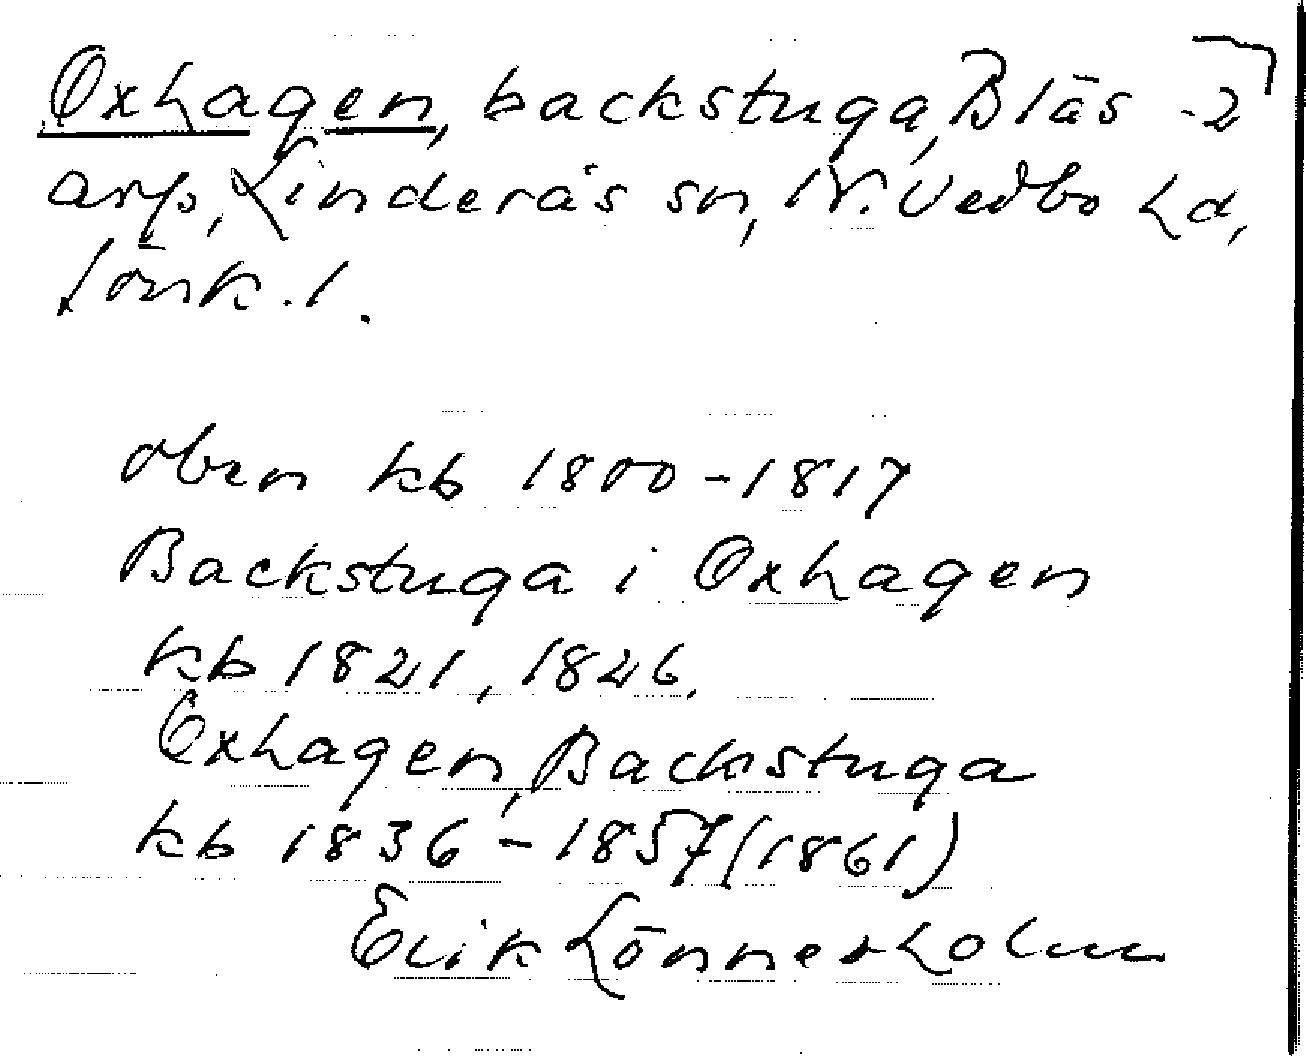 Oxhagen, backstuga, Bläs -2
arp, Linderås sn, N. Vedbo hd,
Jönk. l.
oben kb 1800-1817
Backstuga i Oxhagen
kb 1821, 1826.
Oxhagen, Backstuga
kb 1836-1857 (1861)
Erik Lönnerholm